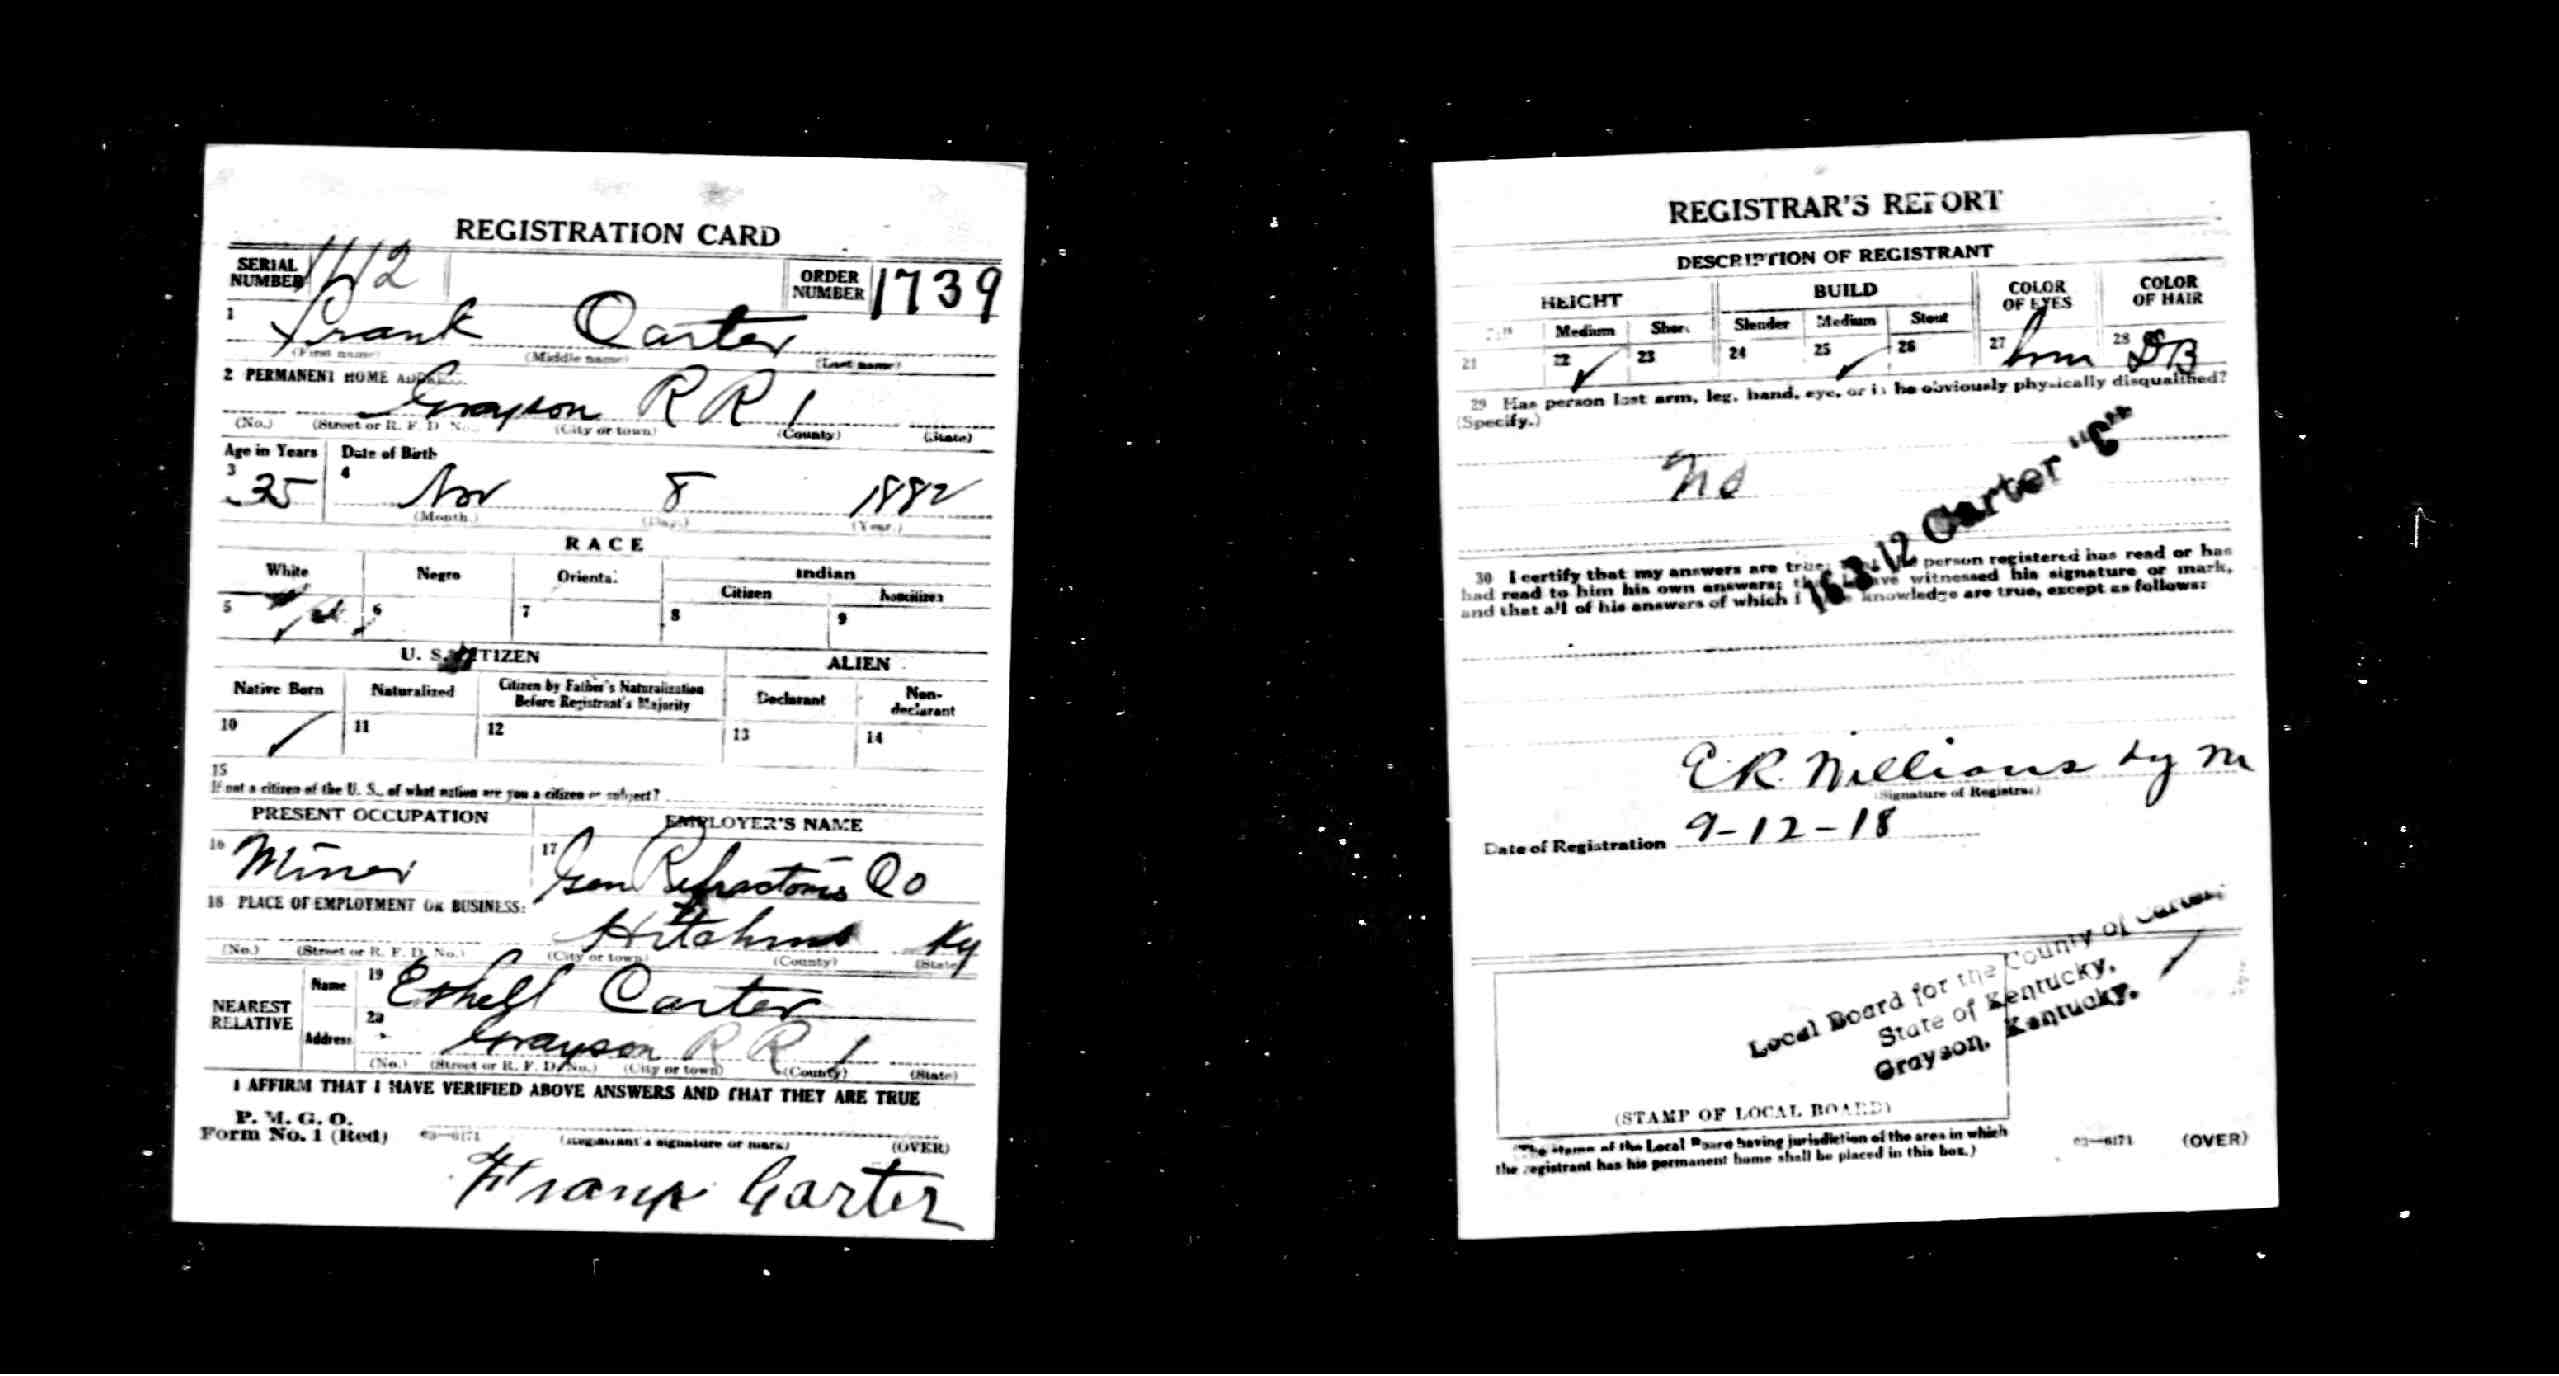 REGISTRATION CARD
SERIAL NUMBER 1412 ORDER NUMBER 1739
1 Frank Carter
(First name) (Middle name) (Last name)
2 PERMANENT HOME ADDRESS
Grayson R R 1
(No.) (Street or R. F. D. No.) (City or town) (County) (State)
Age in Years Date of Birth
3 35 4 Nov 8 1882
(Month.) (Day.) (Year.)
RACE
White Negro Oriental Indian
Citizen Noncitizen
5 6 7 8 9
U. S. CITIZEN ALIEN
Native Born Naturalized Citizen by Father's Naturalization Before Registrant's Majority Declarant Non-declarant
10 11 12 13 14
15
If not a citizen of the U. S., of what nation are you a citizen or subject?
PRESENT OCCUPATION EMPLOYER'S NAME
16 Miner 17 Gen Refractories Co
18 PLACE OF EMPLOYMENT OR BUSINESS:
Hitchins Ky
(No.) (Street or R. F. D. No.) (City or town) (County) (State)
NEAREST RELATIVE Name 19 Carter
Address 20 Grayson R R 1
(No.) (Street or R. F. D. No.) (City or town) (County) (State)
I AFFIRM THAT I HAVE VERIFIED ABOVE ANSWERS AND THAT THEY ARE TRUE
P. M. G. O.
Form No. 1 (Red) 03—6171 (Registrant's signature or mark) (OVER)
Frank Carter
REGISTRAR'S REPORT
DESCRIPTION OF REGISTRANT
HEIGHT BUILD COLOR OF EYES COLOR OF HAIR
Tall Medium Short Slender Medium Stout
21 22 23 24 25 26 27 28 DB
29 Has person lost arm, leg, hand, eye, or is he obviously physically disqualified?
(Specify.)
No
16-3-12 Carter "C"
30 I certify that my answers are true; person registered has read or has
had read to him his own answers; that I have witnessed his signature or mark,
and that all of his answers of which I have knowledge are true, except as follows:
E.R. Millians by M
(Signature of Registrar)
Date of Registration 9-12-18
Local Board for the County of Carter,
State of Kentucky,
Grayson, Kentucky.
(STAMP OF LOCAL BOARD)
(The stamp of the Local Board having jurisdiction of the area in which
the registrant has his permanent home shall be placed in this box.)
03—6171 (OVER)